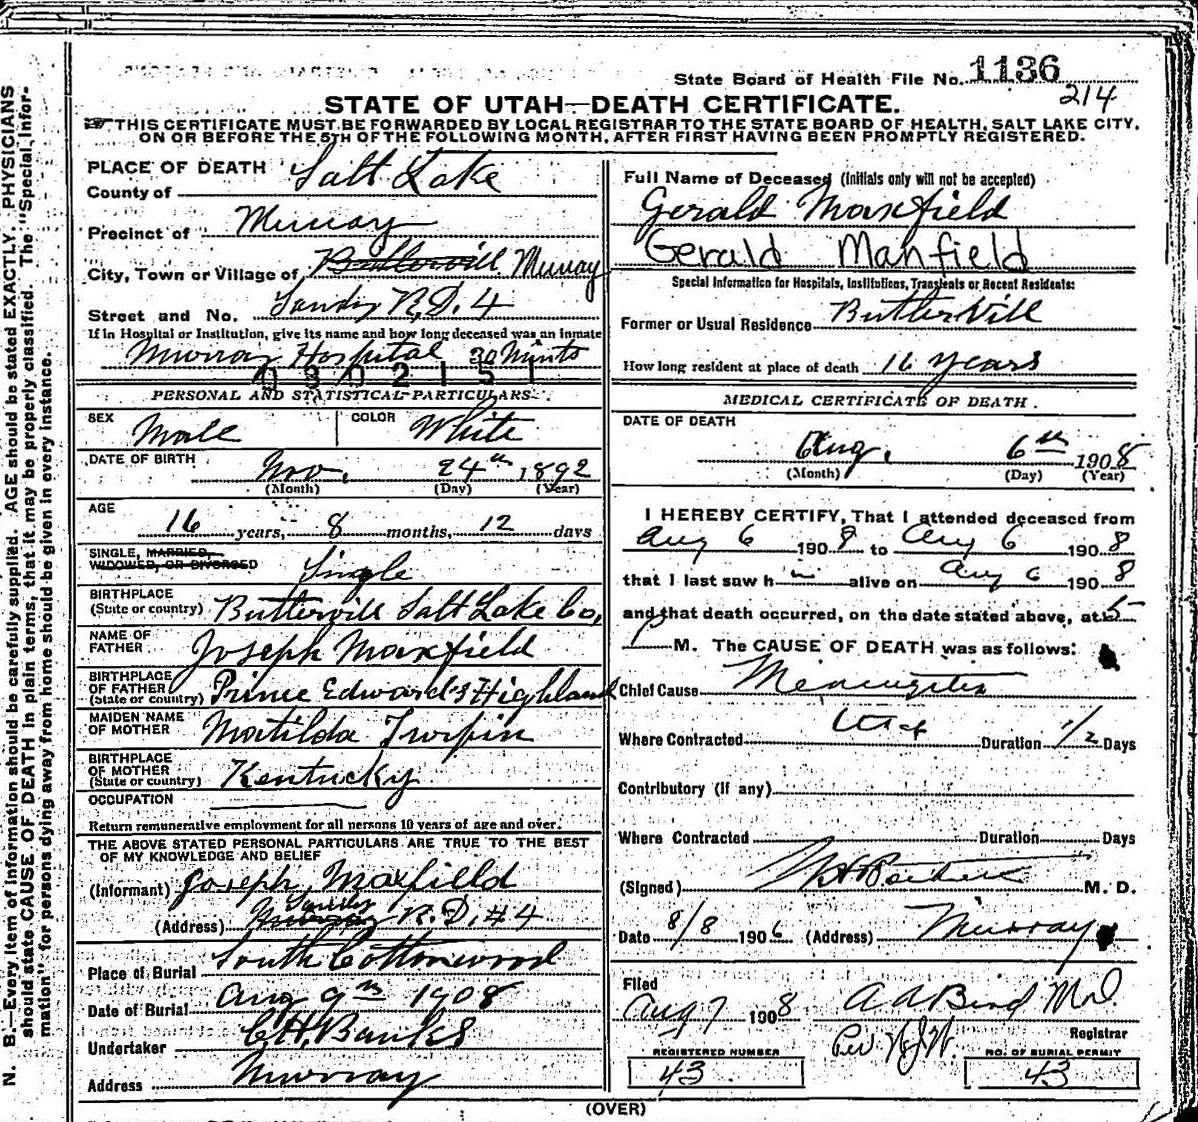 State Board of Health File No. 1136
214
STATE OF UTAH—DEATH CERTIFICATE.
THIS CERTIFICATE MUST BE FORWARDED BY LOCAL REGISTRAR TO THE STATE BOARD OF HEALTH, SALT LAKE CITY,
ON OR BEFORE THE 5TH OF THE FOLLOWING MONTH, AFTER FIRST HAVING BEEN PROMPTLY REGISTERED.
N. B.—Every item of information should be carefully supplied. AGE should be stated EXACTLY. PHYSICIANS
should state CAUSE OF DEATH in plain terms, that it may be properly classified. The "Special Infor-
mation" for persons dying away from home should be given in every instance.
PLACE OF DEATH
County of Salt Lake
Precinct of Murray
City, Town or Village of Buttervill Murray
Street and No. Sandy R.D. 4
If in Hospital or Institution, give its name and how long deceased was an inmate
Murray Hospital 30 Mints
0302151
PERSONAL AND STATISTICAL PARTICULARS
SEX Male COLOR White
DATE OF BIRTH Nov. 24th 1892
(Month) (Day) (Year)
AGE
16 years, 8 months, 12 days
SINGLE, MARRIED,
WIDOWED, OR DIVORCED Single
BIRTHPLACE
(State or country) Buttervill Salt Lake Co,
NAME OF
FATHER Joseph Maxfield
BIRTHPLACE
OF FATHER
(State or country) Prince Edward's Highland
MAIDEN NAME
OF MOTHER Matilda Turpin
BIRTHPLACE
OF MOTHER
(State or country) Kentucky
OCCUPATION
Return remunerative employment for all persons 10 years of age and over.
THE ABOVE STATED PERSONAL PARTICULARS ARE TRUE TO THE BEST
OF MY KNOWLEDGE AND BELIEF
(Informant) Joseph Maxfield
Sandy
(Address) Murray R.D. #4
Place of Burial South Cottonwood
Date of Burial Aug 9th 1908
Undertaker C.H. Banks
Address Murray
Full Name of Deceased (Initials only will not be accepted)
Gerald Maxfield
Gerald Manfield
Special Information for Hospitals, Institutions, Transients or Recent Residents:
Former or Usual Residence Buttervill
How long resident at place of death 16 years
MEDICAL CERTIFICATE OF DEATH
DATE OF DEATH
Aug. 6th 1908
(Month) (Day) (Year)
I HEREBY CERTIFY, That I attended deceased from
Aug 6 1908 to Aug 6 1908
that I last saw h im alive on Aug 6 1908
and that death occurred, on the date stated above, at 5
P M. The CAUSE OF DEATH was as follows:
Chief Cause Meningitis
Where Contracted Utah Duration 1/2 Days
Contributory (If any)
Where Contracted Duration Days
(Signed) M. D.
Date 8/8 1906 (Address) Murray
Filed
Aug 7 1908 A A Bird MD
Registrar
REGISTERED NUMBER
43
NO. OF BURIAL PERMIT
43
(OVER)